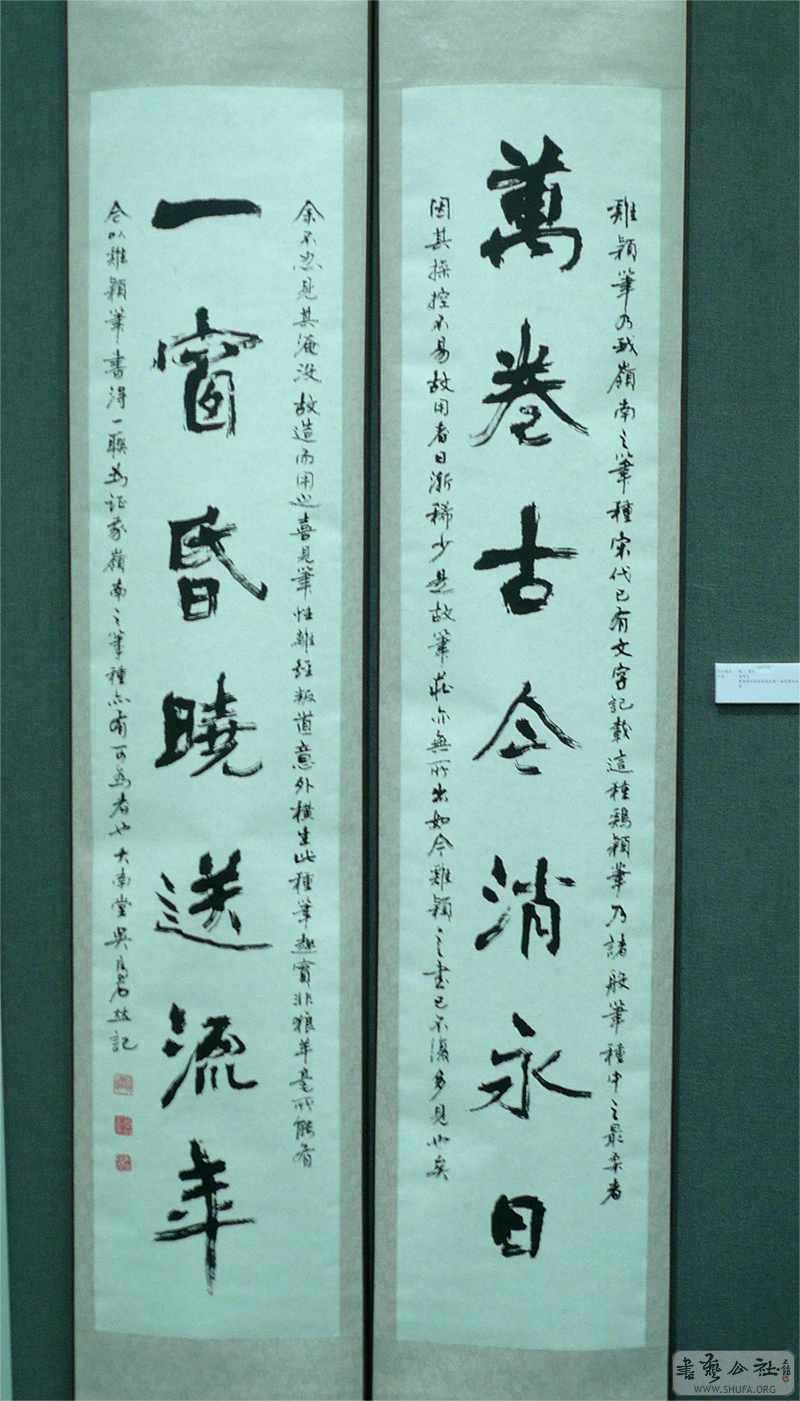 雞颖筆乃我嶺南之筆種宋代已有文字記載這種鷄颖筆乃諸般筆種中之最柔者
萬卷古今消永日
因其操控不易故用者日漸稀少是故筆莊亦無所出如今雞颖之書已不復多見也矣
余不忍見其淹没故造而用之喜見筆性離經叛道意外橫生此種筆趣實非狼羊毫所能有
一窗昏曉送流年
今以雞颖筆書得一聯為证我嶺南之筆種亦有可為者也大南堂吳 記
書藝公社
WWW.SHUFA.ORG